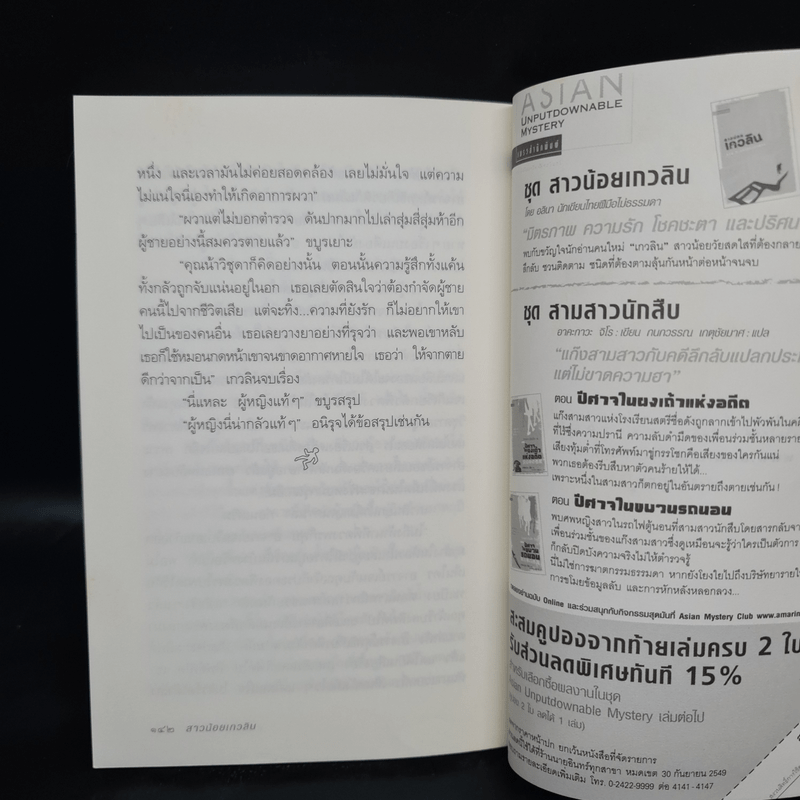 หนึ่ง และเวลามันไม่ค่อยสอดคล้อง เลยไม่มั่นใจ แต่ความ
ไม่แน่ใจนี่เองทำให้เกิดอาการผวา"
"ผวาแต่ไม่บอกตำรวจ ดันปากมากไปเล่าสุ่มสี่สุ่มห้าอีก
ผู้ชายอย่างนี้สมควรตายแล้ว" ขบูรเยาะ
"คุณน้าวิชุตาก็คิดอย่างนั้น ตอนนั้นความรู้สึกทั้งแค้น
ทั้งกลัวถูกจับแน่นอยู่ในอก เธอเลยตัดสินใจว่าต้องกำจัดผู้ชาย
คนนี้ไปจากชีวิตเสีย แต่จะทิ้ง...ความที่ยังรัก ก็ไม่อยากให้เขา
ไปเป็นของคนอื่น เธอเลยวางยาอย่างที่รุจว่า และพอเขาหลับ
เธอก็ใช้หมอนกดหน้าเขาจนขาดอากาศหายใจ เธอว่า ให้จากตาย
ดีกว่าจากเป็น" เกวลินจบเรื่อง
"นี่แหละ ผู้หญิงแท้ๆ" ขบูรสรุป
"ผู้หญิงนี่น่ากลัวแท้ๆ" อนิรุจได้ข้อสรุปเช่นกัน
๑๔๒ สาวน้อยเกวลิน
ASIAN
UNPUTDOWNABLE
MYSTERY
เกวลิน
ชุด สาวน้อยเกวลิน
โดย อลินา นักเขียนไทยฝีมือไม่ธรรมดา
"มิตรภาพ ความรัก โชคชะตา และปริศนา
พบกับขวัญใจนักอ่านคนใหม่ "เกวลิน" สาวน้อยวัยสดใสที่ต้องกลาย
ลึกลับ ชวนติดตาม ชนิดที่ต้องตามลุ้นกันหน้าต่อหน้าจนจบ
ชุด สามสาวนักสืบ
อาคะกาวะ จิโร : เขียน กนกวรรณ เกตุชัยมาศ : แปล
"แก๊งสามสาวกับคดีลึกลับแปลกประ
แต่ไม่ขาดความฮา"
ตอน ปีศาจในผงเถ้าแห่งอดีต
แก๊งสามสาวแห่งโรงเรียนสตรีชื่อดังถูกลากเข้าไปพัวพันในคดี
ที่ไร้ซึ่งความปรานี ความลับดำมืดของเพื่อนร่วมชั้นหลายราย
เสียงทุ้มต่ำที่โทรศัพท์มาขู่กรรโชกคือเสียงของใครกันแน่
พวกเธอต้องรีบสืบหาตัวคนร้ายให้ได้...
เพราะหนึ่งในสามสาวก็ตกอยู่ในอันตรายถึงตายเช่นกัน!
ตอน ปีศาจในขบวนรถนอน
พบศพหญิงสาวในรถไฟตู้นอนที่สามสาวนักสืบโดยสารกลับจาก
เพื่อนร่วมชั้นของแก๊งสามสาวซึ่งดูเหมือนจะรู้ว่าใครเป็นตัวการ
ก็กลับปิดบังความจริงไม่ให้ตำรวจรู้
นี่ไม่ใช่การฆาตกรรมธรรมดา หากยังโยงใยไปถึงบริษัทยาราย
การขโมยข้อมูลลับ และการหักหลังหลอกลวง...
Online และร่วมสนุกกับกิจกรรมสุดมันที่ Asian Mystery Club www.amarin
สะสมคูปองจากท้ายเล่มครบ 2 ใบ
รับส่วนลดพิเศษทันที 15%
สำหรับเลือกซื้อผลงานในชุด
Asian Unputdownable Mystery เล่มต่อไป
2 ใบ ลดได้ 1 เล่ม)
ราคาหน้าปก ยกเว้นหนังสือที่จัดรายการ
นี้ใช้ได้ที่ร้านนายอินทร์ทุกสาขา หมดเขต 30 กันยายน 2549
รายละเอียดเพิ่มเติม โทร. 0-2422-9999 ต่อ 4141 - 4147